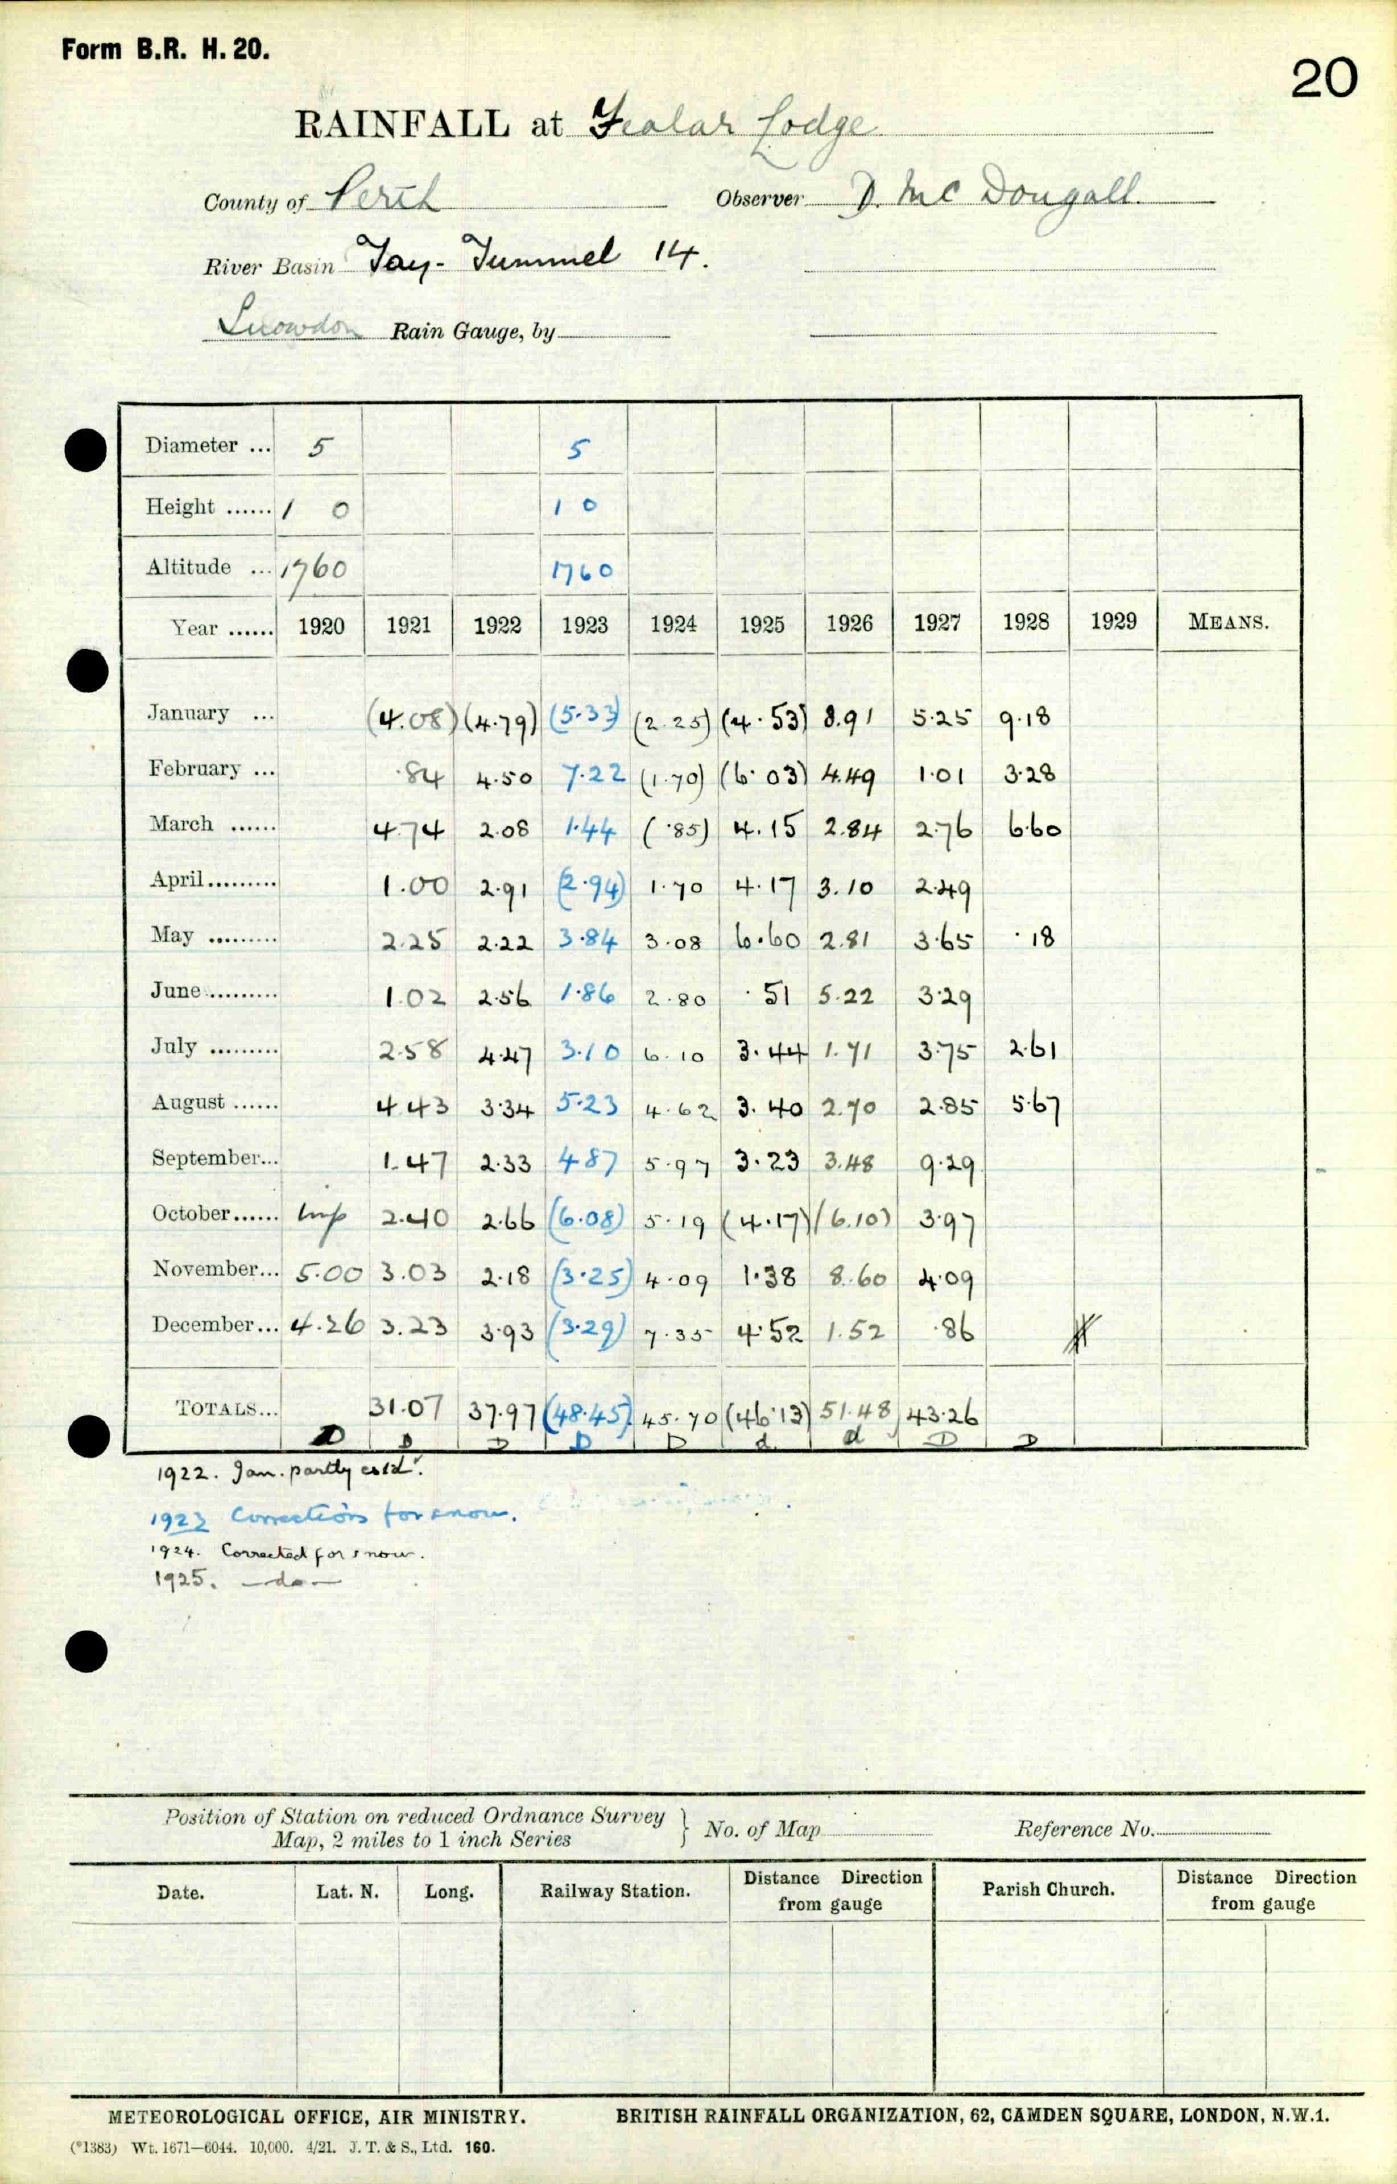 Form B.R. H. 20.
20
RAINFALL at Fealar Lodge
County of Perth Observer D. McDougall.
River Basin Tay-Tummel 14.
Snowdon Rain Gauge, by
Diameter ... 5 5
Height ...... 1 0 1 0
Altitude ... 1760 1760
Year ...... 1920 1921 1922 1923 1924 1925 1926 1927 1928 1929 MEANS.
January ... (4.08) (4.79) (5.33) (2.25) (4.53) 8.91 5.25 9.18
February ... .84 4.50 7.22 (1.70) (6.03) 4.49 1.01 3.28
March ...... 4.74 2.08 1.44 (.85) 4.15 2.84 2.76 6.60
April......... 1.00 2.91 (2.94) 1.70 4.17 3.10 2.49
May ......... 2.25 2.22 3.84 3.08 6.60 2.81 3.65 .18
June......... 1.02 2.56 1.86 2.80 .51 5.22 3.29
July ......... 2.58 4.47 3.10 6.10 3.44 1.71 3.75 2.61
August ...... 4.43 3.34 5.23 4.62 3.40 2.70 2.85 5.67
September... 1.47 2.33 4.87 5.97 3.23 3.48 9.29
October...... imp 2.40 2.66 (6.08) 5.19 (4.17) (6.10) 3.97
November... 5.00 3.03 2.18 (3.25) 4.09 1.38 8.60 4.09
December... 4.26 3.23 3.93 (3.29) 7.35 4.52 1.52 .86
TOTALS... 31.07 37.97 (48.45) 45.70 (46.13) 51.48 43.26
D D D D D d d D D
1922. Jan. partly estd.
1923 Corrections for snow.
1924. Corrected for snow.
1925. —do—
Position of Station on reduced Ordnance Survey
Map, 2 miles to 1 inch Series } No. of Map Reference No.
Date. Lat. N. Long. Railway Station. Distance Direction from gauge Parish Church. Distance Direction from gauge
METEOROLOGICAL OFFICE, AIR MINISTRY. BRITISH RAINFALL ORGANIZATION, 62, CAMDEN SQUARE, LONDON, N.W.1.
(*1383) Wt. 1671—6044. 10,000. 4/21. J. T. & S., Ltd. 160.